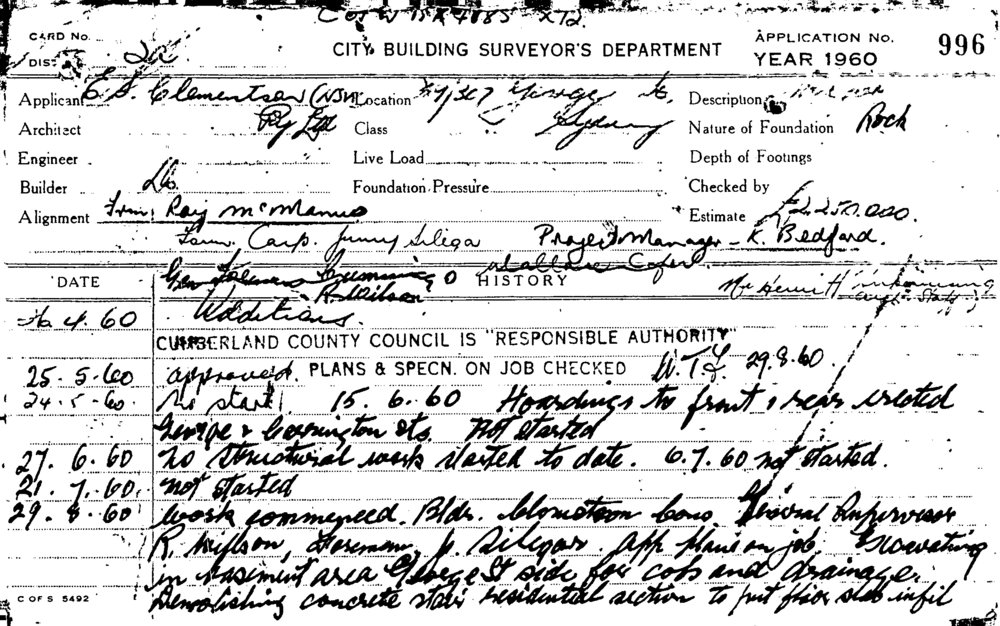 CARD No.
CITY BUILDING SURVEYOR'S DEPARTMENT
APPLICATION No. 996
DIST. 2a
YEAR 1960
Applicant E. S. Clementson (NSW) Location George St. Description
Architect Pty Ltd Class Sydney Nature of Foundation Rock
Engineer Live Load Depth of Footings
Builder Do. Foundation Pressure Checked by
Alignment Frm: Ray McManus Estimate £2,250,000.
Carp. Jimmy Silega Project Manager - K. Bedford.
Gen Foreman
DATE R. Wilson HISTORY
4.60 Additions.
CUMBERLAND COUNTY COUNCIL IS "RESPONSIBLE AUTHORITY"
25.5.60 approved. PLANS & SPECN. ON JOB CHECKED W.T.L. 29.8.60.
24.5.60. No start 15.6.60 Hoardings to front & rear erected
George & Carrington Sts. Not started
27.6.60 No structural work started to date. 6.7.60 not started.
21.7.60. not started
29.8.60 Work commenced. Bldr. Clemetson Cons. General Supervisor
R. Willson, Foreman, J. Silegar. App plans on job. Excavating
in basement area George St side for cols and drainage.
C OF S 5492 Demolishing concrete stair residential section to put floor slab infil